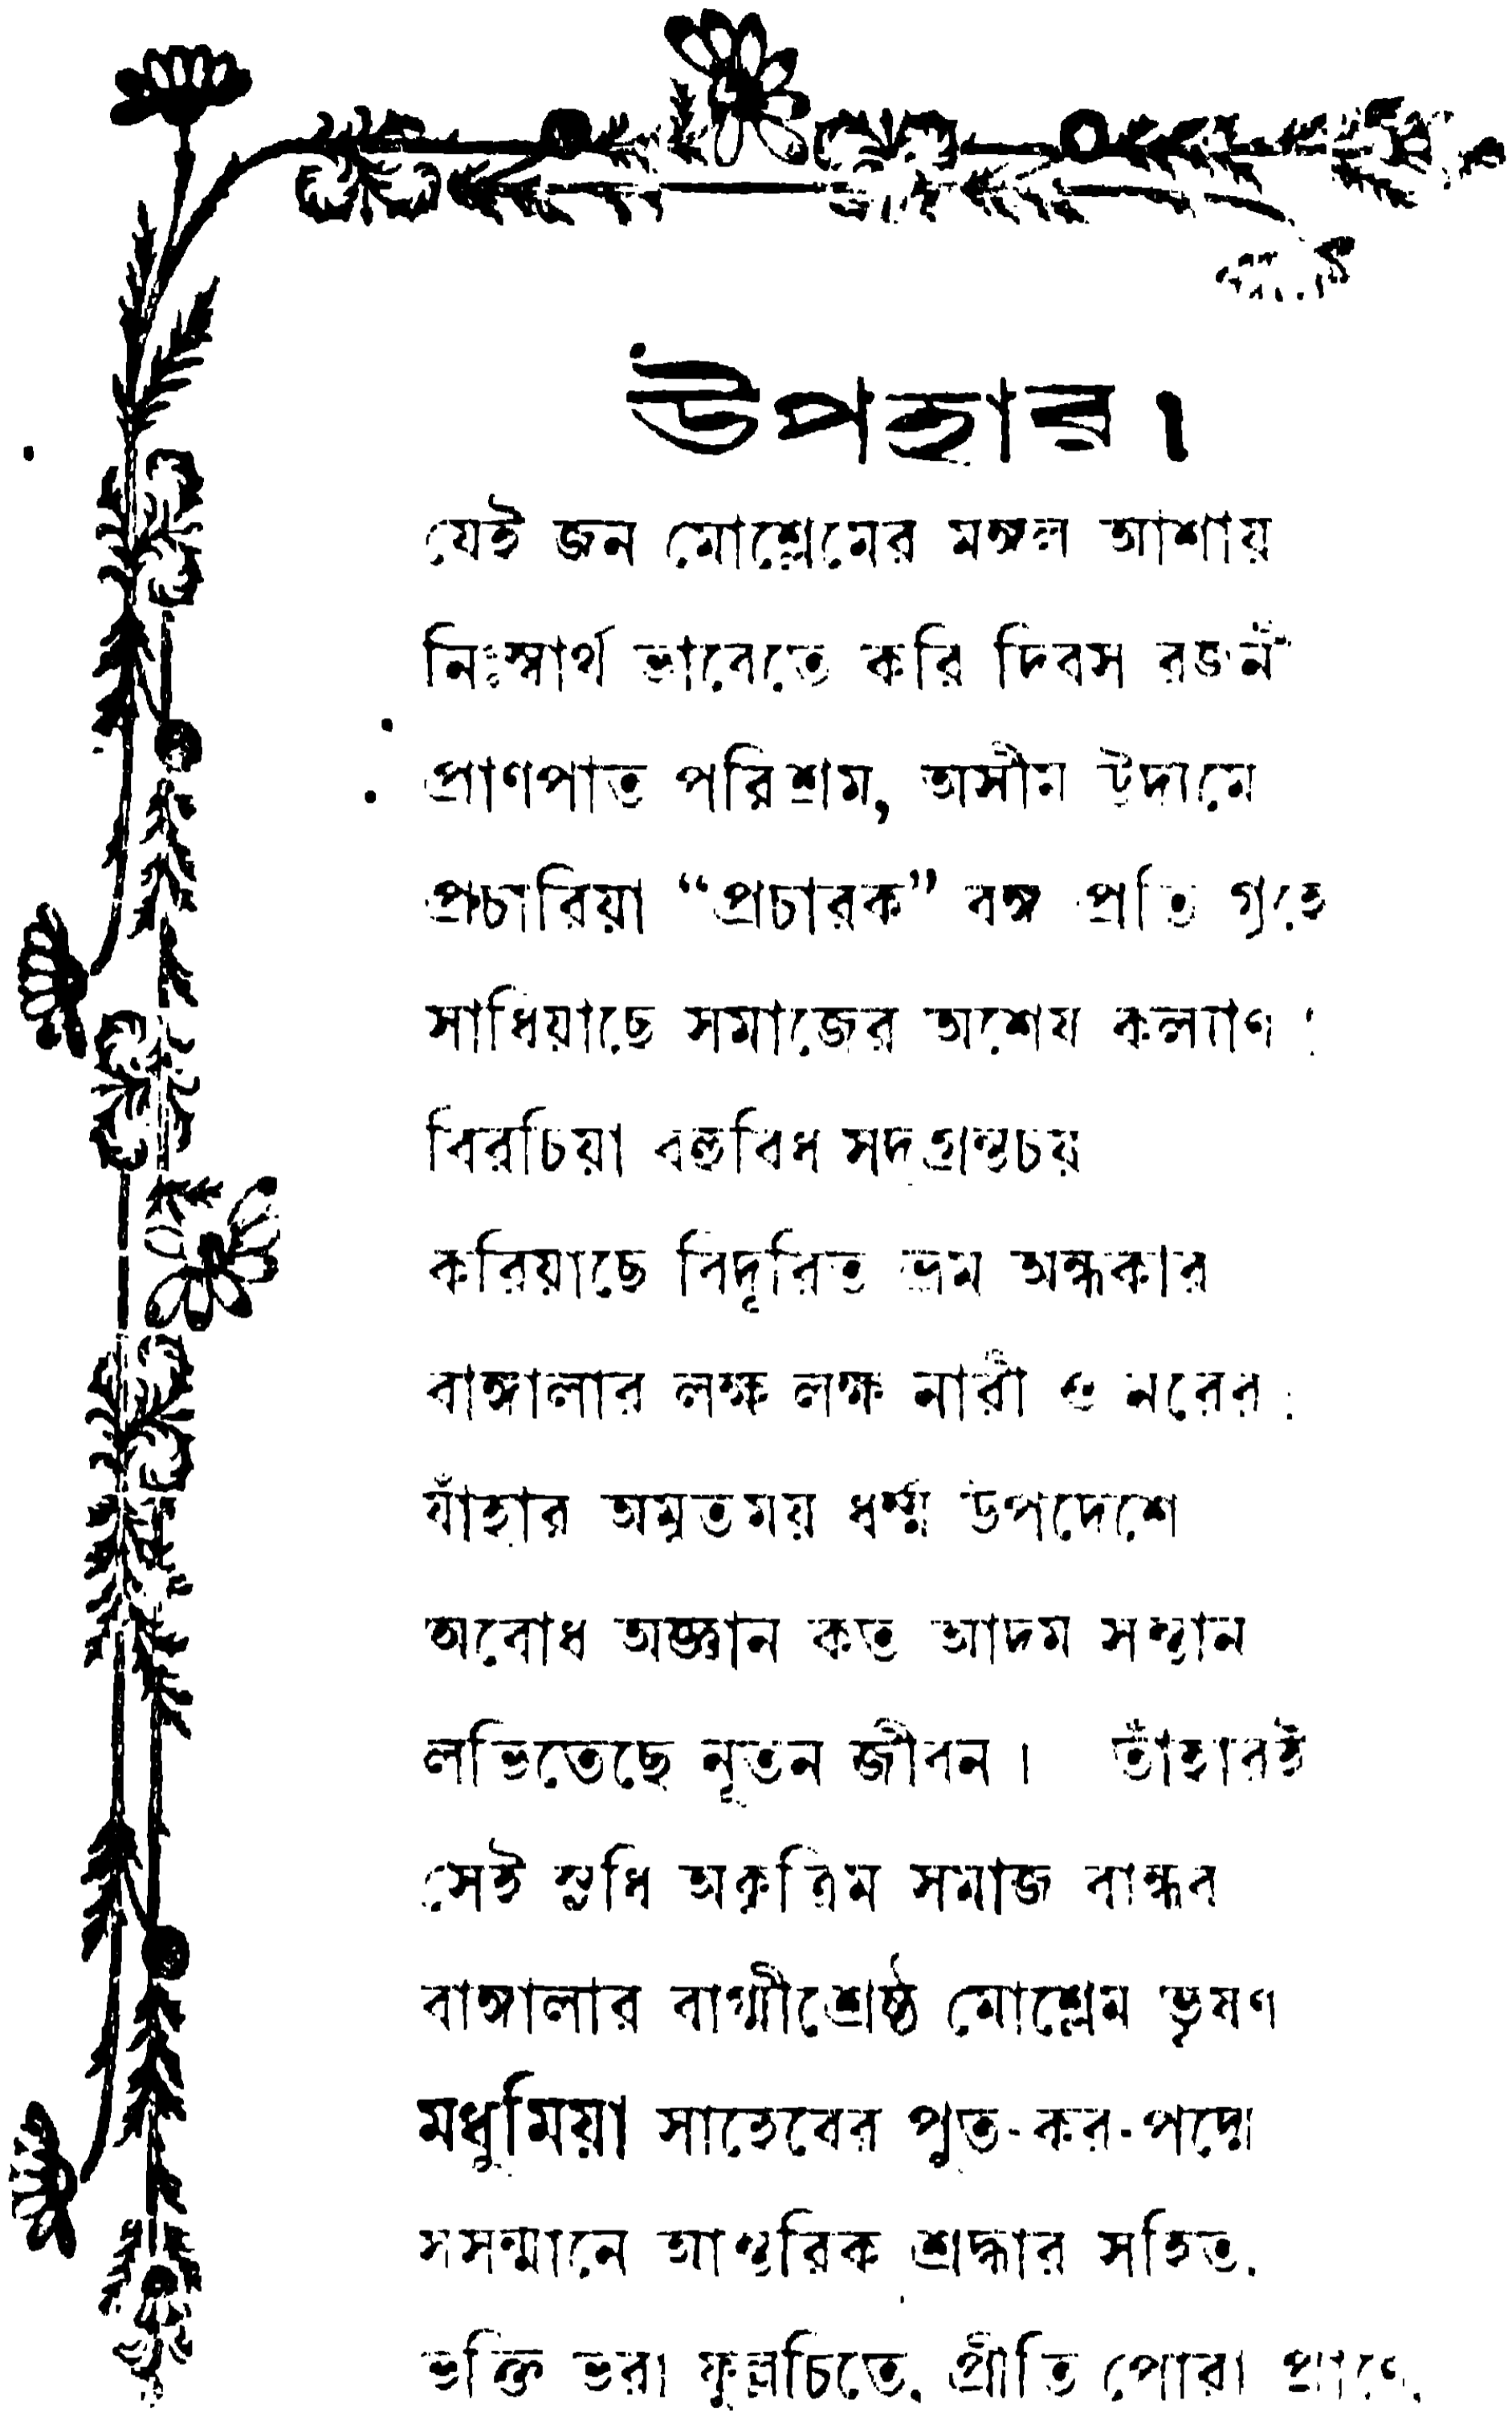 উপহার।
যেই জন মোশ্লেমের মঙ্গল আশায়
নিঃস্বার্থ ভাবেতে করি দিবস রজনী
প্রাণপাত পরিশ্রম, অসীম উদ্যমে
প্রচারিয়া “প্রচারক” বঙ্গ প্রতি গৃহে
সাধিয়াছে সমাজের অশেষ কল্যাণ;
বিরচিয়া বহুবিধ সদগ্রন্থচয়
করিয়াছে বিদূরিত ভ্রম অন্ধকার
বাঙ্গালার লক্ষ লক্ষ নারী ও নরের;
যাঁহার অমৃতময় ধর্ম্ম উপদেশে
অবোধ অজ্ঞান কত আদম সন্তান
লভিতেছে নূতন জীবন। তাঁহারই
সেই সুধি অকৃত্রিম সমাজ বান্ধব
বাঙ্গালার বাগ্মীশ্রেষ্ঠ মোশ্লেম ভূষণ
মধুমিয়া সাহেবের পুত-কর-পদ্মে
সসম্মানে আন্তরিক শ্রদ্ধার সহিত,
ভক্তি ভরা ফুল্লচিতে, প্রীতি পোরা প্রাণে,